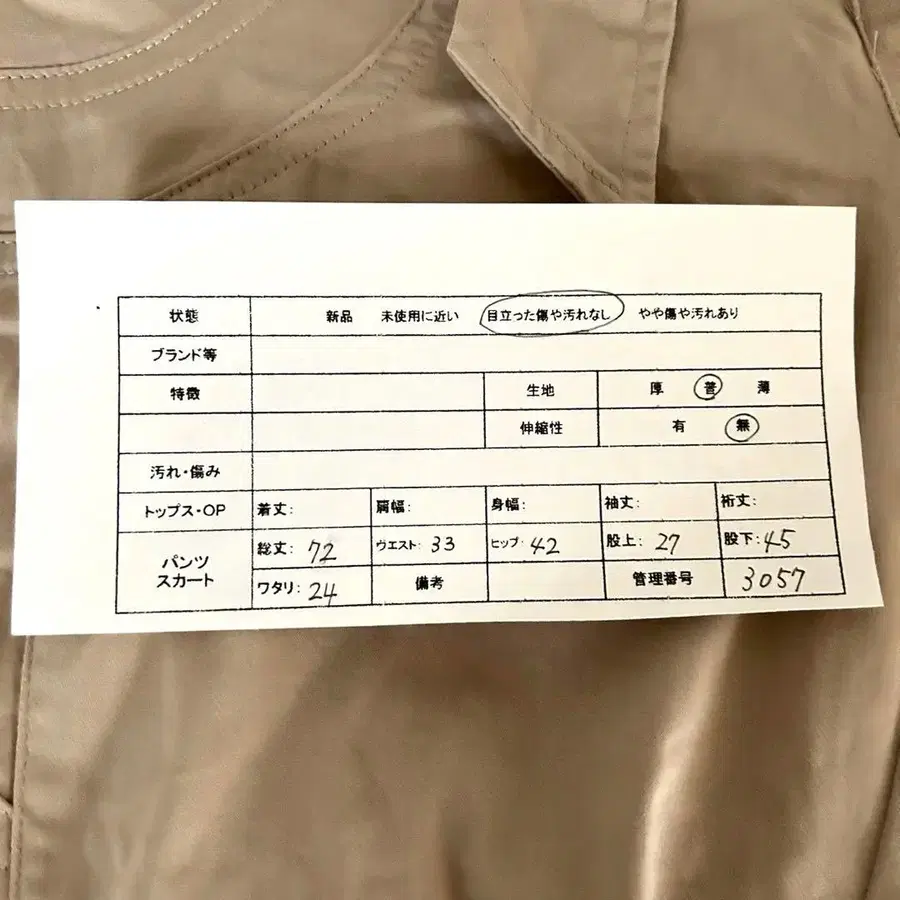 状態 新品 未使用に近い 目立った傷や汚れなし やや傷や汚れあり
ブランド等
特徴 生地 厚 普 薄
伸縮性 有 無
汚れ・傷み
トップス・OP 着丈: 肩幅: 身幅: 袖丈: 裄丈:
パンツ スカート 総丈: 72 ウエスト: 33 ヒップ: 42 股上: 27 股下: 45
ワタリ: 24 備考 管理番号 3057